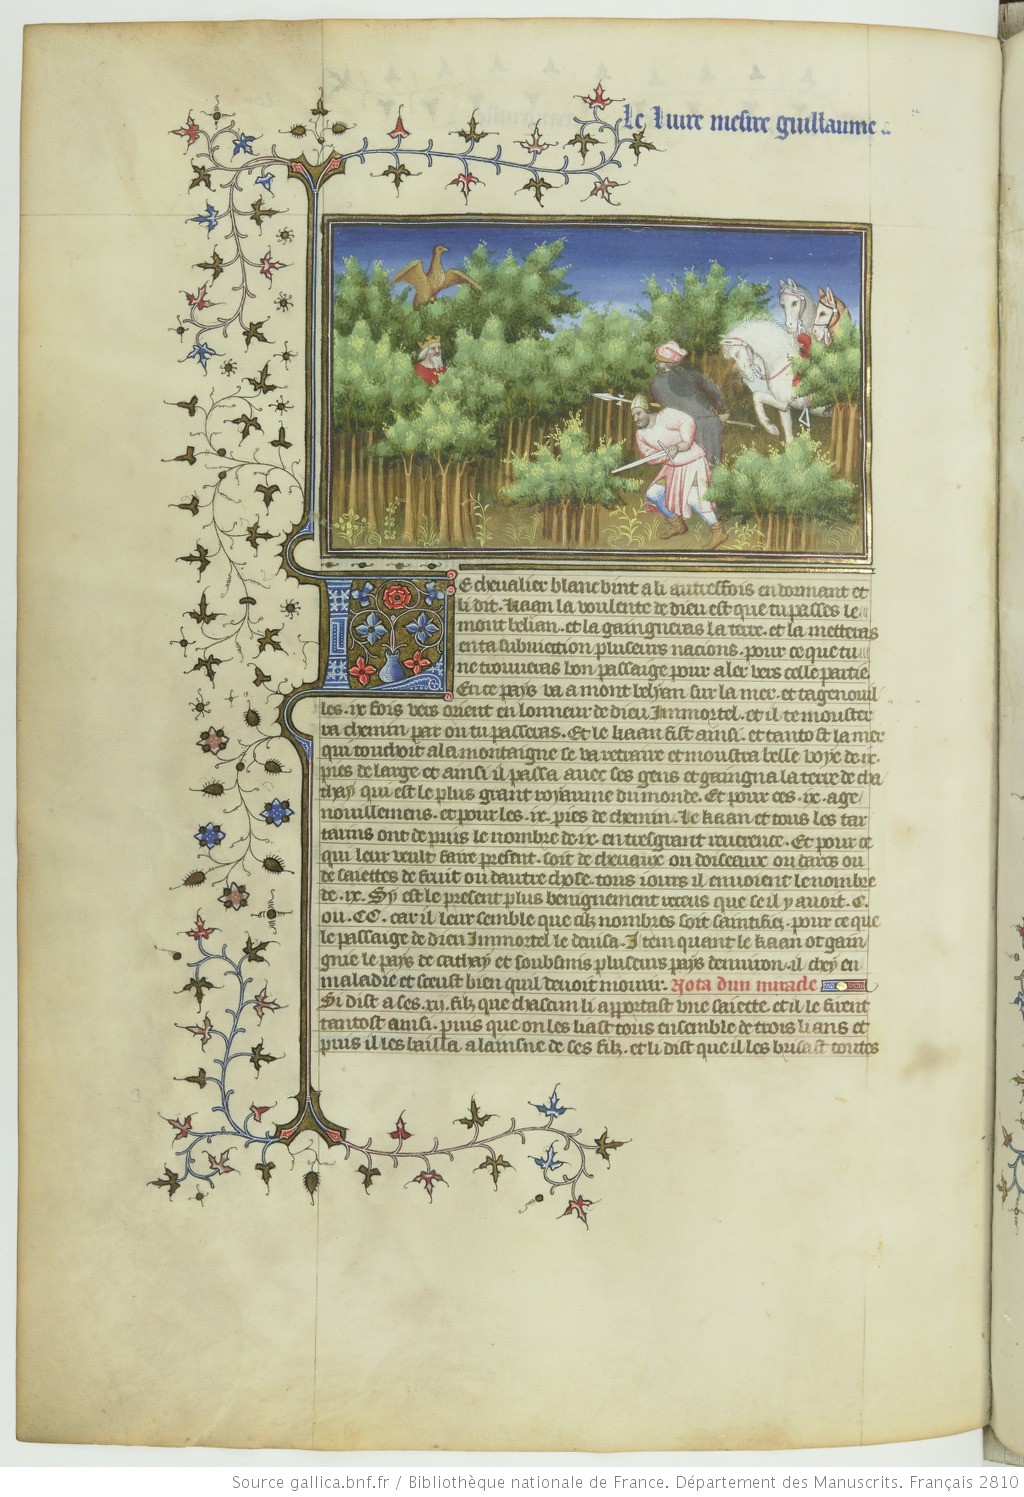 Le livre mesire guillaume
Le chevalier blanc vint a li autresfois en dormant et
li dit. Kaan la voulente de dieu est que tu passes le
mont belian. et la gaingneras la terre. et la metteras
en ta subiection pluseurs nacions. pour ce que tu
ne trouveras bon passaige pour aler vers celle partie
En ce pays va a mont belyan sur la mer. et tagenouil
les .ix. fois vers orient en lonneur de dieu Immortel. et il te monster
ra chemin par ou tu passeras. Et le kaan fist ainsi. et tantost la mer
qui touchoit a la montaigne se va retraire et moustra belle voye de .ix.
pies de large et ainsi il passa avec ses gens et gaigna la terre de cha
thay qui est le plus grant royaume du monde. Et pour ces .ix. age
nouillemens. et pour les .ix. pies de chemin. Le kaan et tous les tar
tarins ont depuis le nombre de .ix. en tresgrant reuerence. Et pour ce
qui leur veult faire present. soit de chevaux ou doiseaux ou darcs ou
de saiettes de fruit ou dautre chose. tous iours il envoient le nombre
de .ix. Sy est le present plus benignement receus que se il y avoit .C.
ou .CC. car il leur semble que cilz nombres soit saintifiez. pour ce que
le passaige de dieu Immortel le devisa. Item quant le kaan ot gain
gnie le pays de cathay et soubsmis pluseurs pays denuiron. il chey en
maladie et sceust bien quil devoit mourir. Nota dun miracle
Si dist a ses .xii. filz que chascun li apportast une saiette. et il le firent
tantost ainsi. puis que on les liast tous ensemble de trois lians et
puis il les bailla a lainsne de ses filz. et li dist que il les brisast toutes
Source gallica.bnf.fr / Bibliothèque nationale de France. Département des Manuscrits. Français 2810